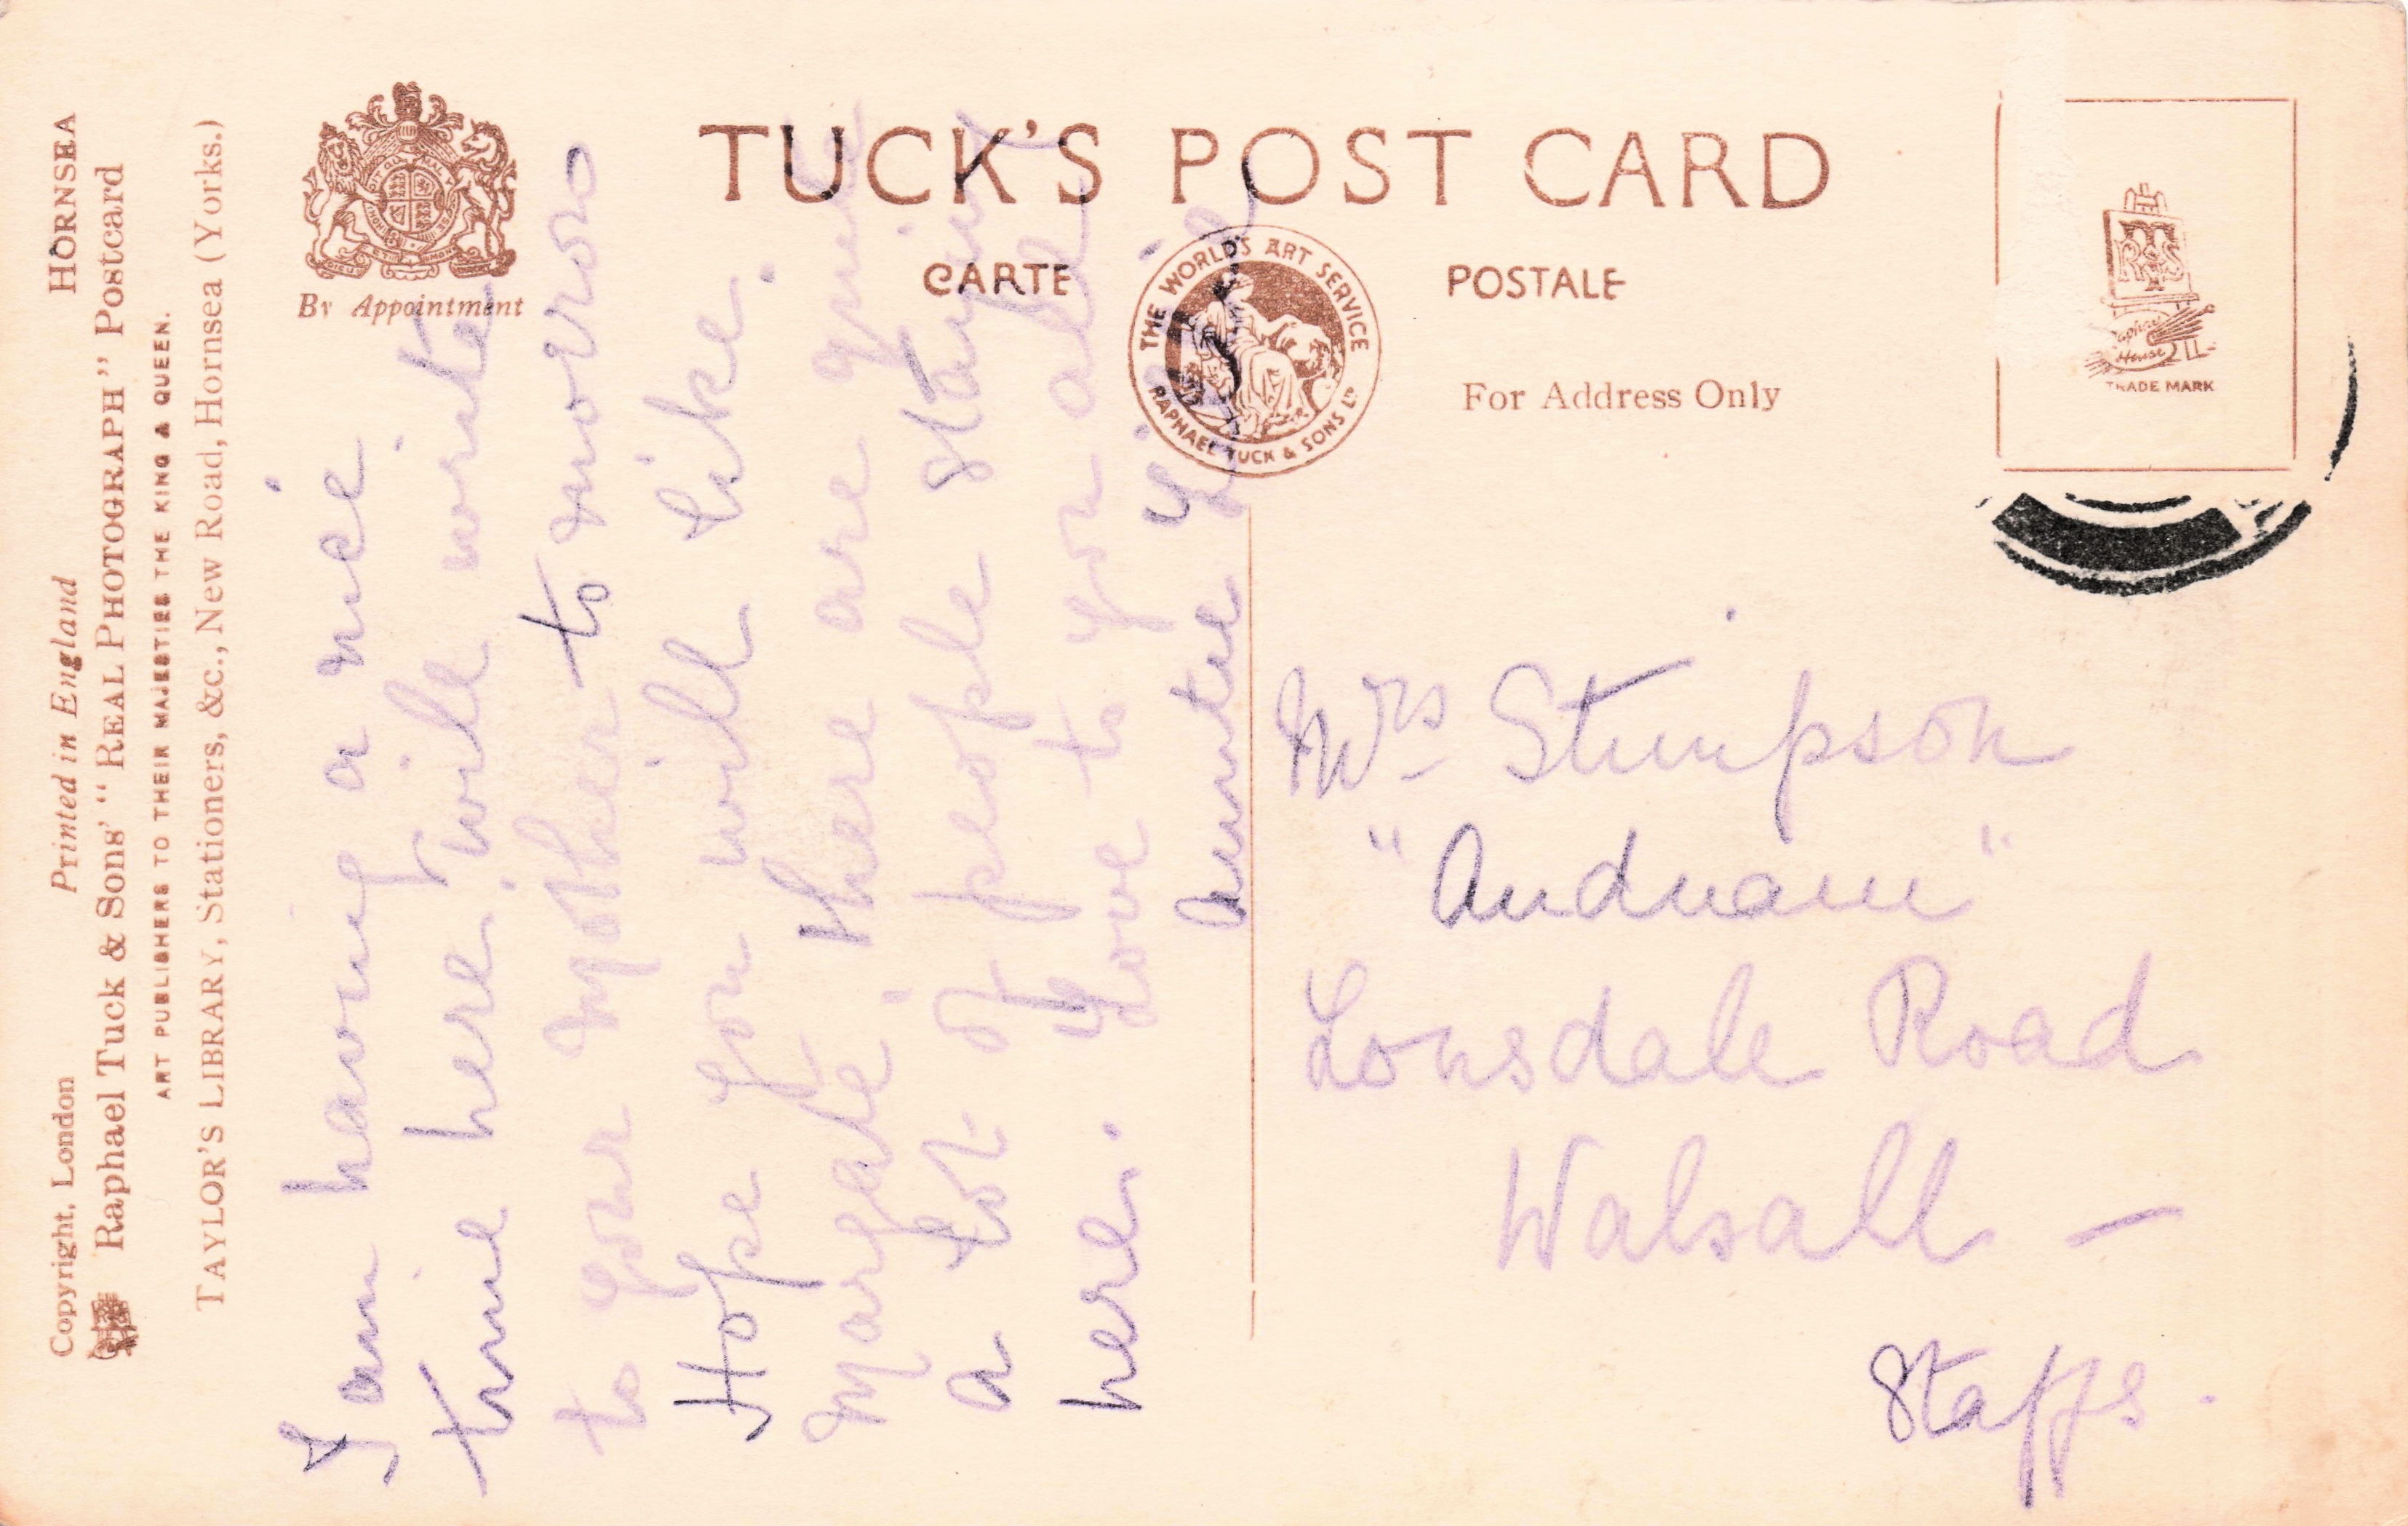 HORNSEA
Printed in England
Copyright, London
Raphael Tuck & Sons' "REAL PHOTOGRAPH" Postcard
ART PUBLISHERS TO THEIR MAJESTIES THE KING & QUEEN.
TAYLOR'S LIBRARY, Stationers, &c., New Road, Hornsea (Yorks.)
By Appointment
TUCK'S POST CARD
CARTE POSTALE
THE WORLD'S ART SERVICE
RAPHAEL TUCK & SONS LTD
For Address Only
Raphael
House
TRADE MARK
I am having a nice
time here. I will write
to your Mother to morrow
Hope you will like
Margate. there are quite
a lot of people staying
here. Love to you all
Auntie
Mrs Stimpson
"Audnam"
Lonsdale Road
Walsall —
Staffs.